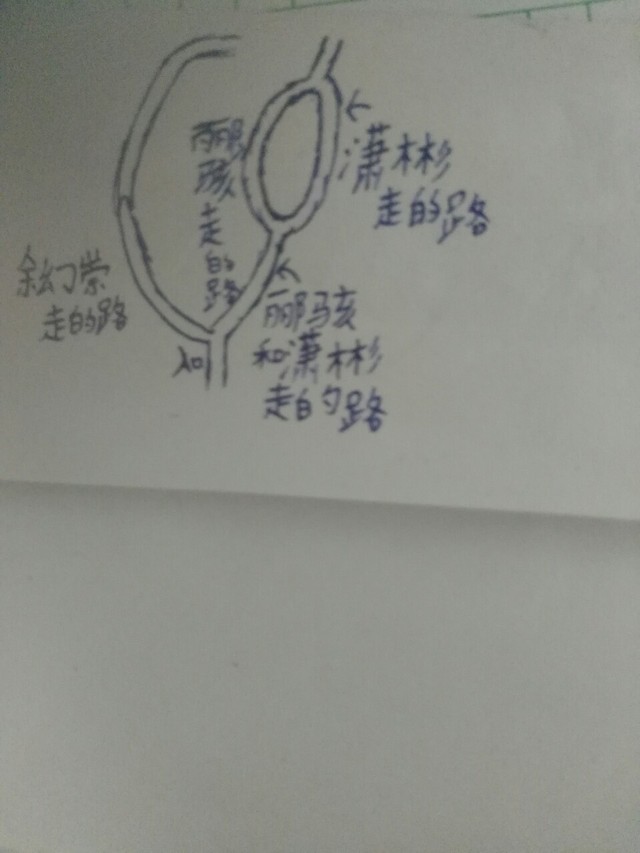 郦
骇
走
的
路
潇彬
走的路
余幻崇
走的路
入口
郦骇
和潇彬
走的路